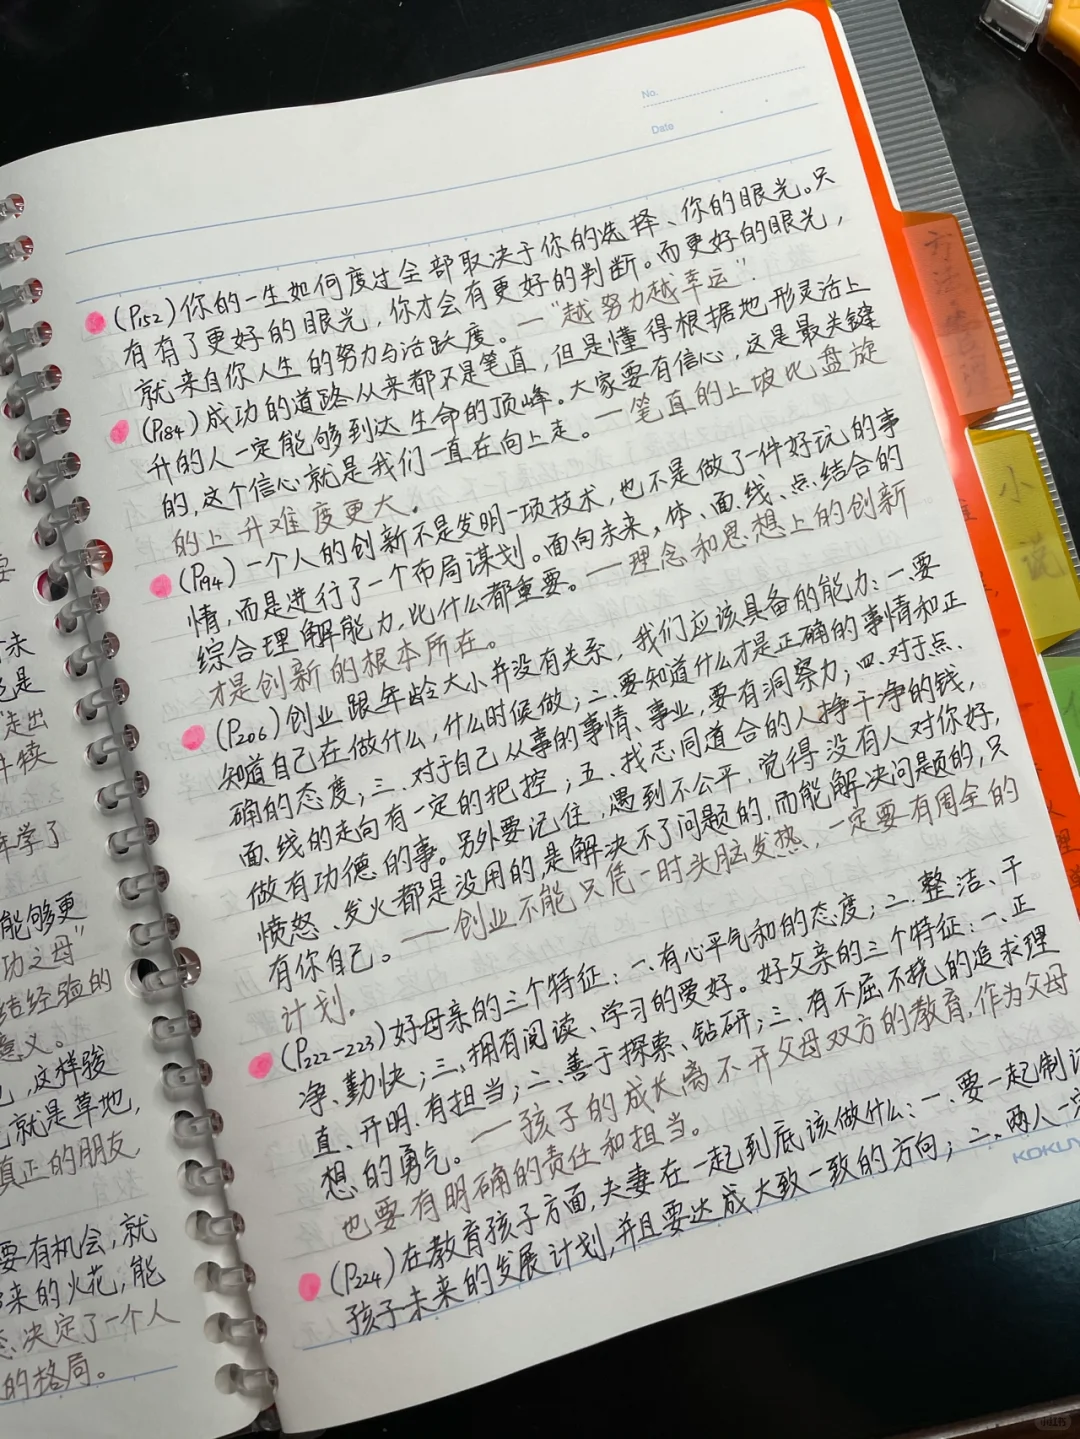 No.
Date
(P152)你的一生如何度过全部取决于你的选择、你的眼光。只
有有了更好的眼光，你才会有更好的判断。而更好的眼光，
就来自你人生的努力与活跃度。—“越努力越幸运”.
(P184)成功的道路从来都不是笔直，但是懂得根据地形灵活上
升的人一定能够到达生命的顶峰。大家要有信心，这是最关键
的，这个信心就是我们一直在向上走。—笔直的上坡比盘旋
的上升难度更大。
(P194)一个人的创新不是发明一项技术，也不是做了一件好玩的事
情，而是进行了一个布局谋划。面向未来，体、面、线、点结合的
综合理解能力，比什么都重要。—理念和思想上的创新
才是创新的根本所在。
(P206)创业跟年龄大小并没有关系，我们应该具备的能力：一、要
知道自己在做什么，什么时候做；二、要知道什么才是正确的事情和正
确的态度；三、对于自己从事的事情、事业，要有洞察力；四、对于点、
面、线的走向有一定的把控；五、找志同道合的人挣干净的钱，
做有功德的事。另外要记住，遇到不公平，觉得没有人对你好，
愤怒、发火都是没用的，是解决不了问题的，而能解决问题的，只
有你自己。——创业不能只凭一时头脑发热，一定要有周全的
计划。
(P222-223)好母亲的三个特征：一、有心平气和的态度；二、整洁、干
净、勤快；三、拥有阅读、学习的爱好。好父亲的三个特征：一、正
直、开明、有担当；二、善于探索、钻研；三、有不屈不挠的追求理
想的勇气。—孩子的成长离不开父母双方的教育，作为父母
也要有明确的责任和担当。
(P224)在教育孩子方面，夫妻在一起到底该做什么：一、要一起制
孩子未来的发展计划，并且要达成大致一致的方向；二、两人一
KOKUY
方法
小
说
走出
年学了
能够更
功之母”
结经验的
意义。
，这样骏
就是草地，
真正的朋友
要有机会，就
来的火花，能
决定了一个人
的格局。
小红书